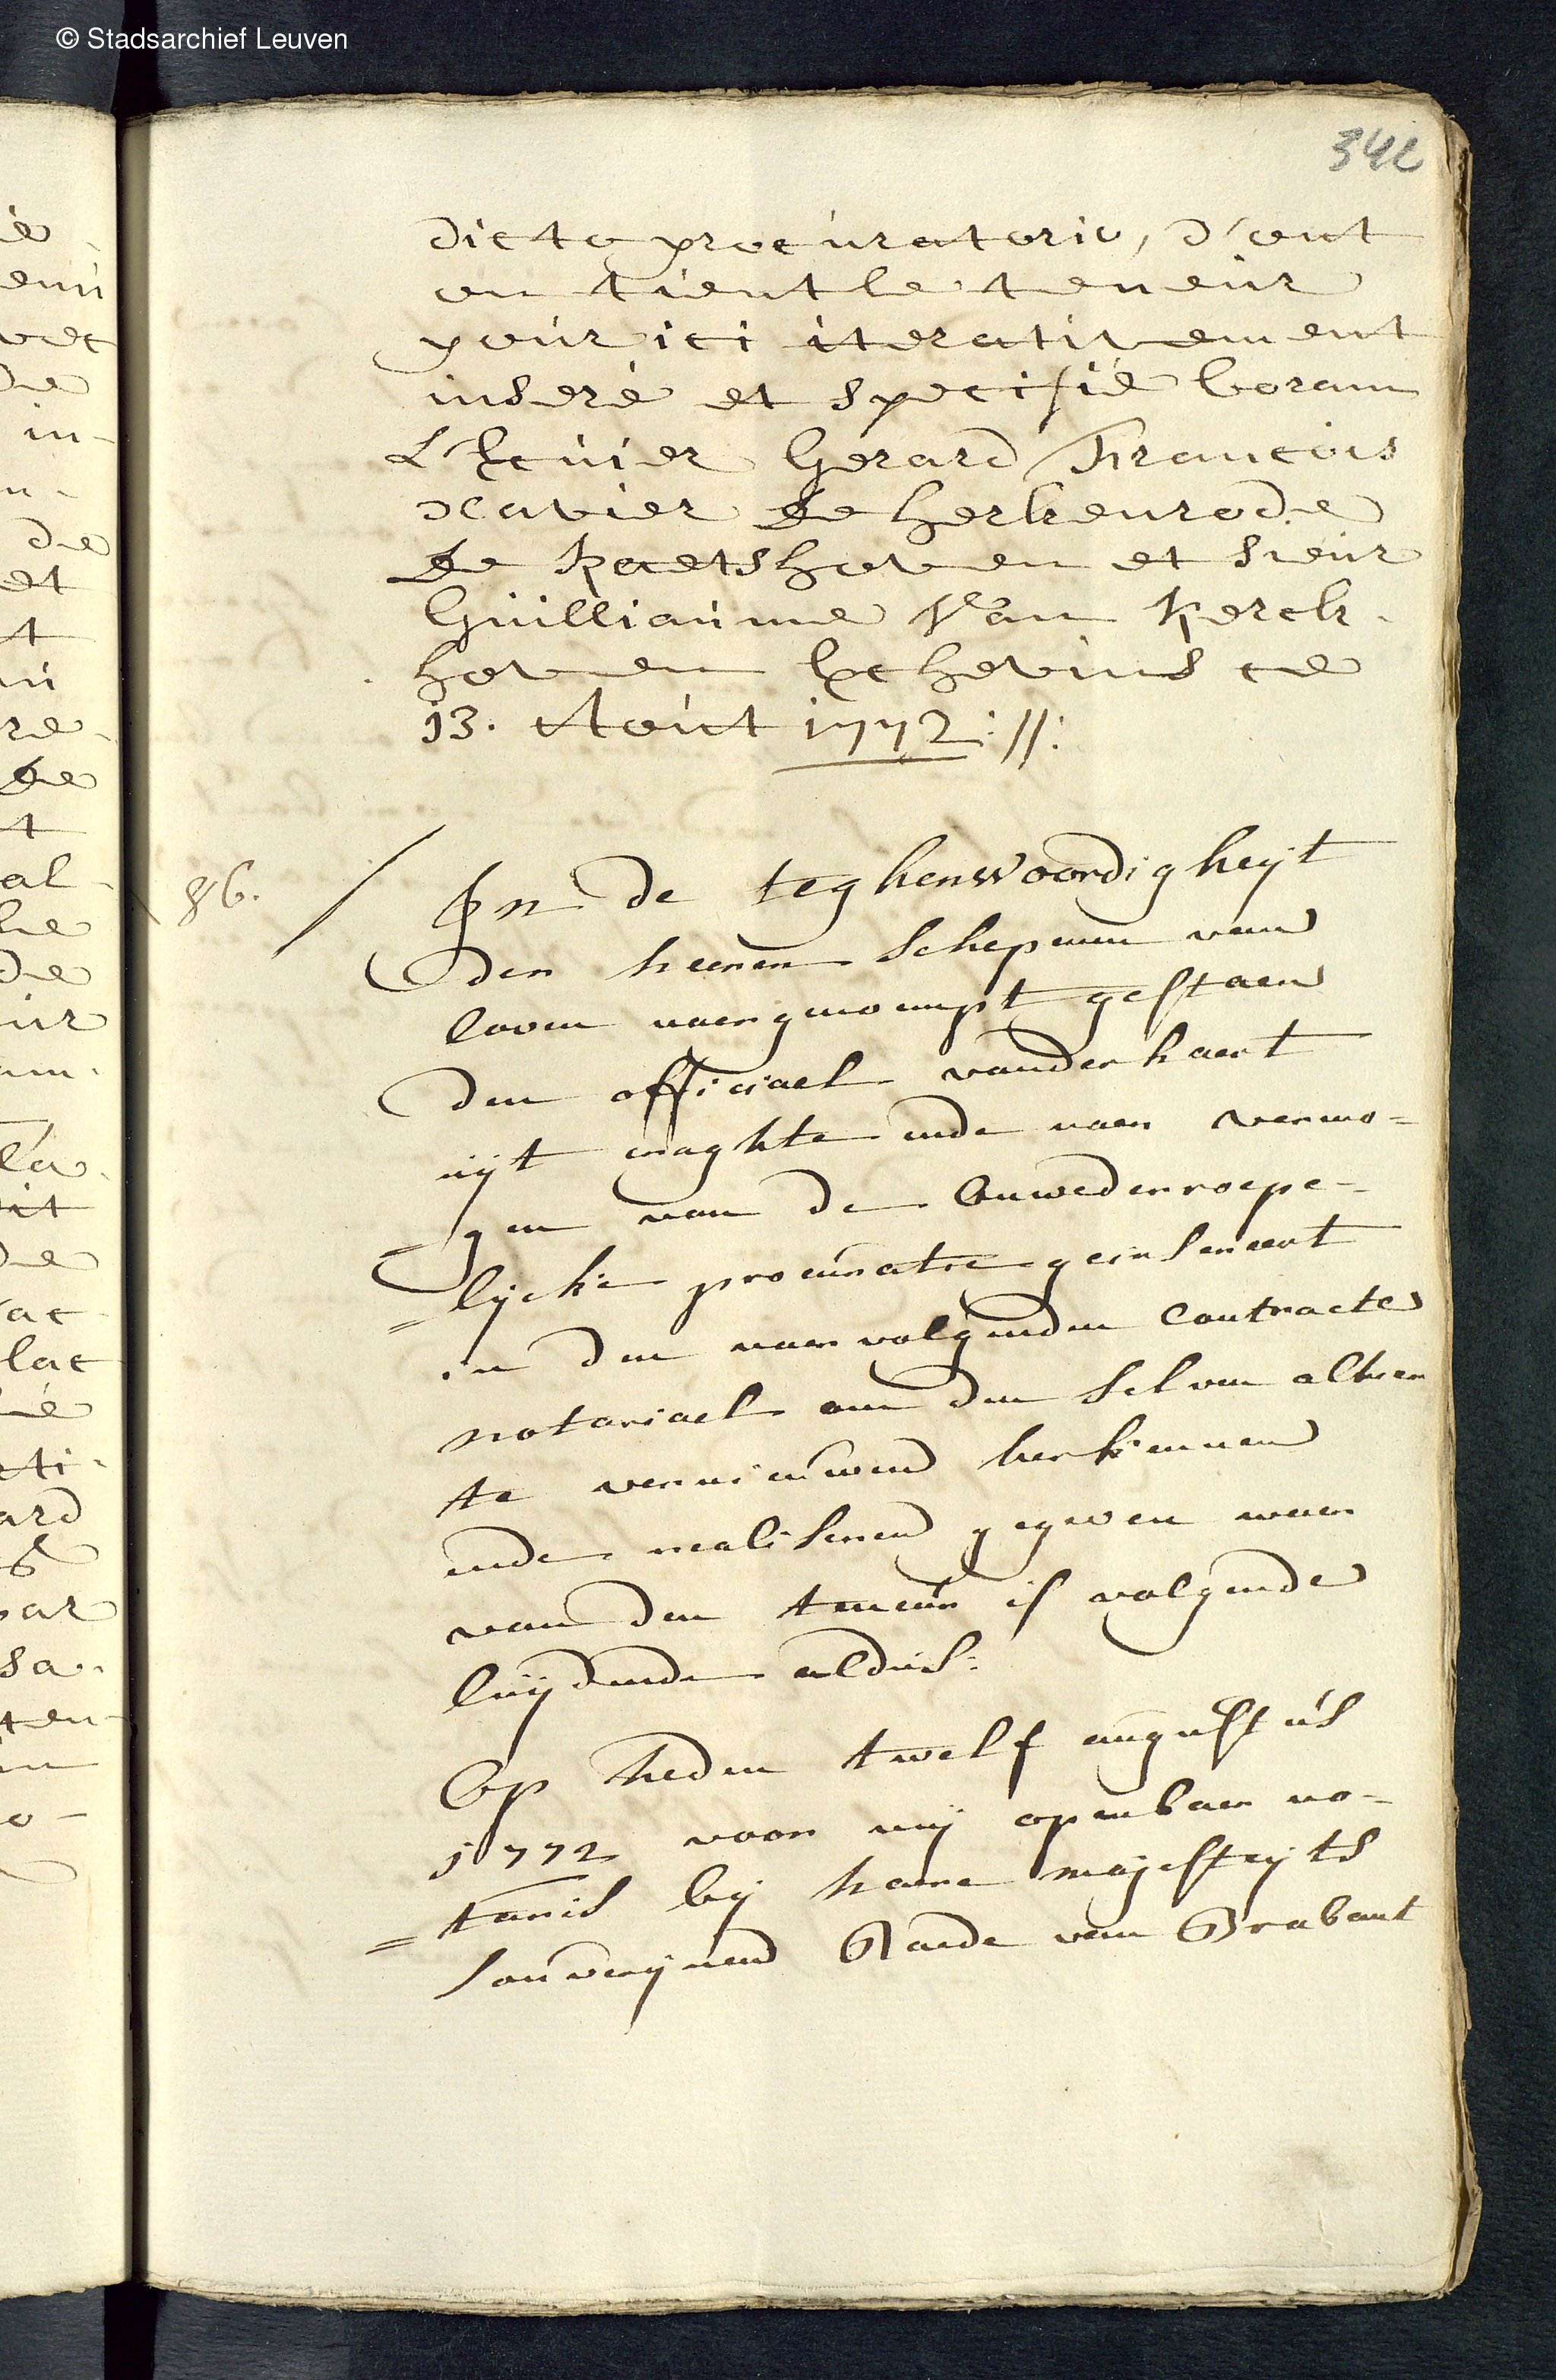 © Stadsarchief Leuven
342
dicto procuratorio, d'ont
on tient le teneur
pour ici iterativement
inseré et specifié Coram
L'Ecuier Gerard François
Xavier de Herckenrode
de Raetshoven et sieur
Guilliaume Van Kerck-
hoven Echevins ce
13. Aoùt 1772://:
86.
In de teghenwoordigheyt
der heeren schepenen van
loven naergenoempt gestaen
den officiael vanderhaert
uyt maghte ende naer vermo=
=gen van de Onwederroepe-
=lycke procuratie geinsereert
in den naervolgenden Contracte
notariael om den selven alhier
te vernieuwen herkennen
ende realiseren gegeven waer
van den teneur is volgende
luydende aldus:
Op heden twelf augustùs
1772 voor my openbaer no-
=taris by haere majesteyts
souvereynen Raede van Brabant